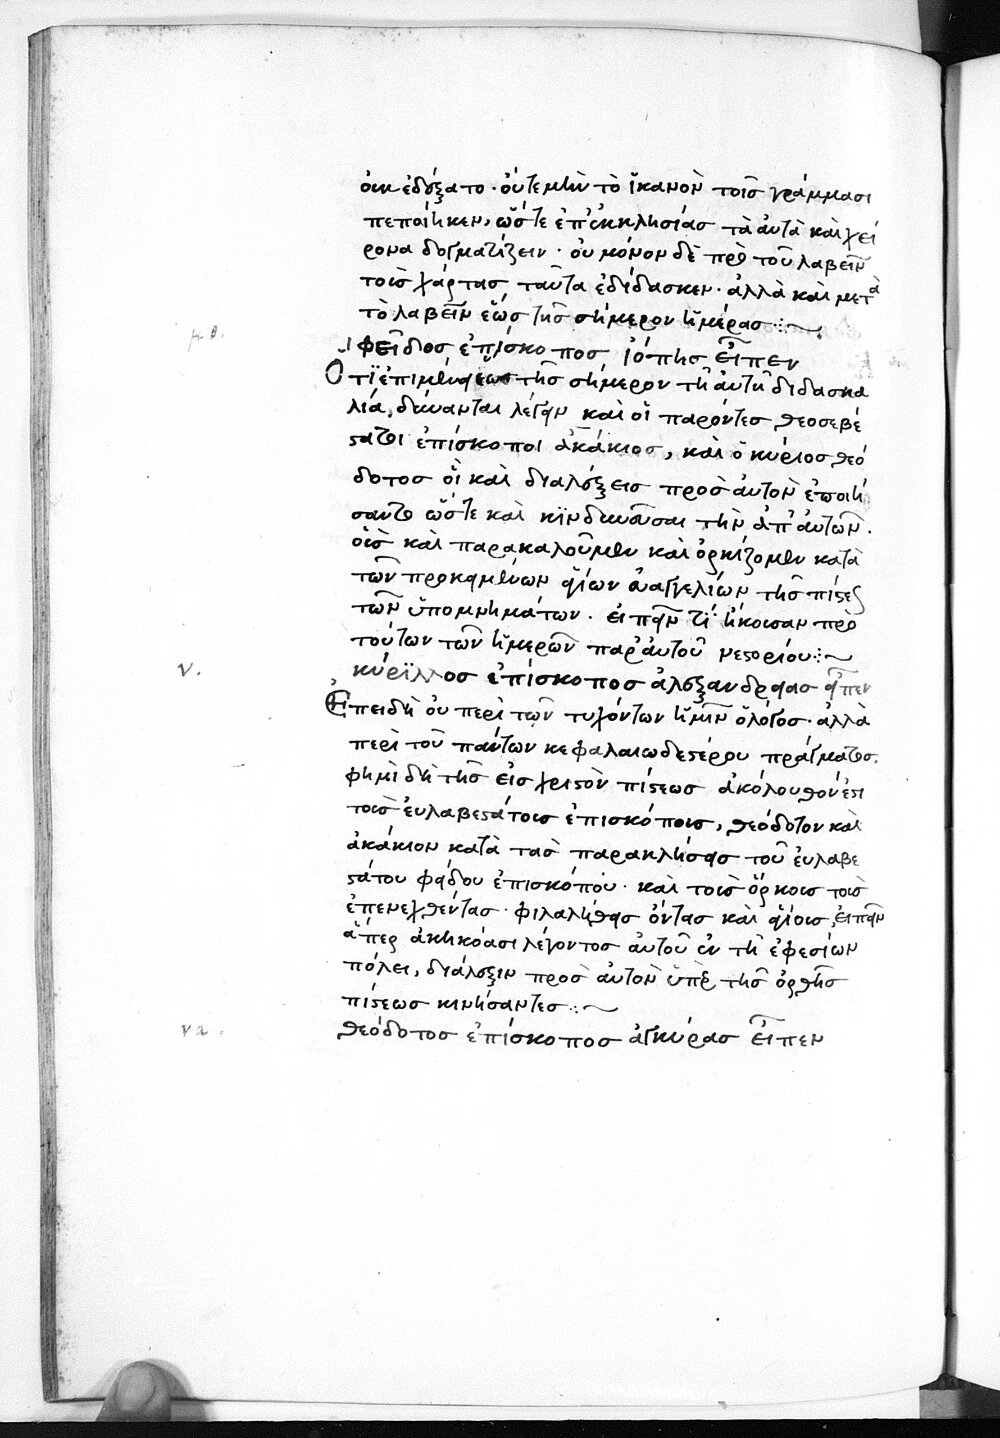 οὐκ ἐδέξατο· οὔτε μὴν τὸ ἱκανὸν τοῖς γράμμασι
πεποίηκεν, ὥστε ἐπ' ἐκκλησίας τὰ αὐτὰ καὶ χεί
ρονα δογματίζειν· οὐ μόνον δὲ πρὸ τοῦ λαβεῖν
τοὺς χάρτας ταῦτα ἐδίδασκεν· ἀλλὰ καὶ μετὰ
τὸ λαβεῖν ἕως τῆς σήμερον ἡμέρας :~
μθ.
φεῖδος ἐπίσκοπος ἰόπης εἶπεν
Ὅτι ἐπιμένει ἕως τῆς σήμερον τῇ αὐτῇ διδασκα
λία, δύνανται λέγειν καὶ οἱ παρόντες θεοσεβέ
στατοι ἐπίσκοποι ἀκάκιος, καὶ ὁ κύριος θεό
δοτος οἳ καὶ διαλέξεις πρὸς αὐτὸν ἐποιή
σαντο ὥστε καὶ κινδυνεῦσαι τὴν ἀπ' αὐτῶν.
οὓς καὶ παρακαλοῦμεν καὶ ὁρκίζομεν κατὰ
τῶν προκειμένων ἁγίων εὐαγγελίων τῆς πίστεως
τῶν ὑπομνημάτων. εἰπεῖν τί ἤκουσαν πρὸ
τούτων τῶν ἡμερῶν παρ' αὐτοῦ νεστορίου :~
ν.
κύριλλος ἐπίσκοπος ἀλεξανδρείας εἶπεν
Ἐπειδὴ οὐ περὶ τῶν τυχόντων ἡμῖν ὁ λόγος· ἀλλὰ
περὶ τοῦ πάντων κεφαλαιωδεστέρου πράγματος.
φημὶ δὴ τῆς εἰς χριστὸν πίστεως ἀκόλουθόν ἐστι
τοὺς εὐλαβεστάτους ἐπισκόπους, θεόδοτον καὶ
ἀκάκιον κατὰ τὰς παρακλήσεις τοῦ εὐλαβε
στάτου φείδου ἐπισκόπου· καὶ τοὺς ὅρκους τοὺς
ἐπενεχθέντας· φιλαλήθεις ὄντας καὶ ἁγίους, εἰπεῖν
ἅπερ ἀκηκόασι λέγοντος αὐτοῦ ἐν τῇ ἐφεσίων
πόλει, διάλεξιν πρὸς αὐτὸν ὑπὲρ τῆς ὀρθῆς
πίστεως κινήσαντες :~
να.
θεόδοτος ἐπίσκοπος ἀγκύρας εἶπεν